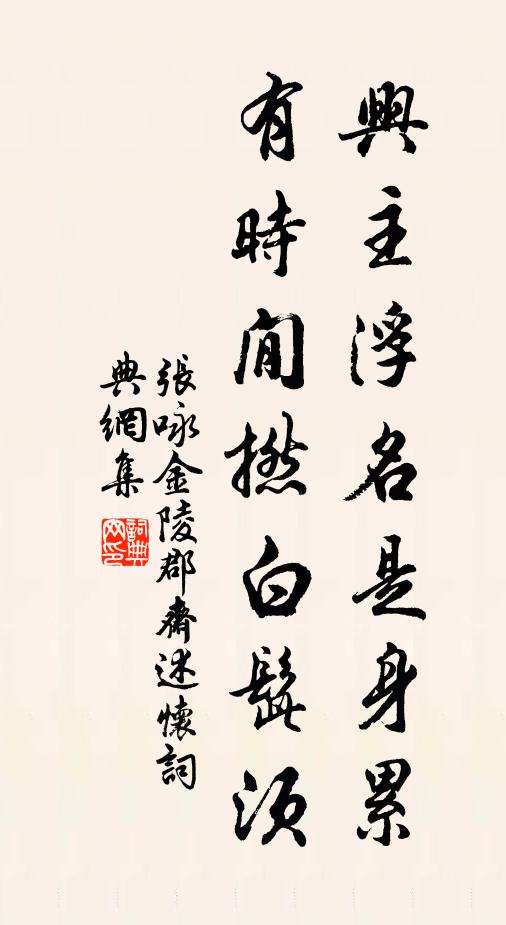 興主浮名是身累
有時閒撚白髭須
張咏金陵郡齋述懷詞
典網集
詞典網印